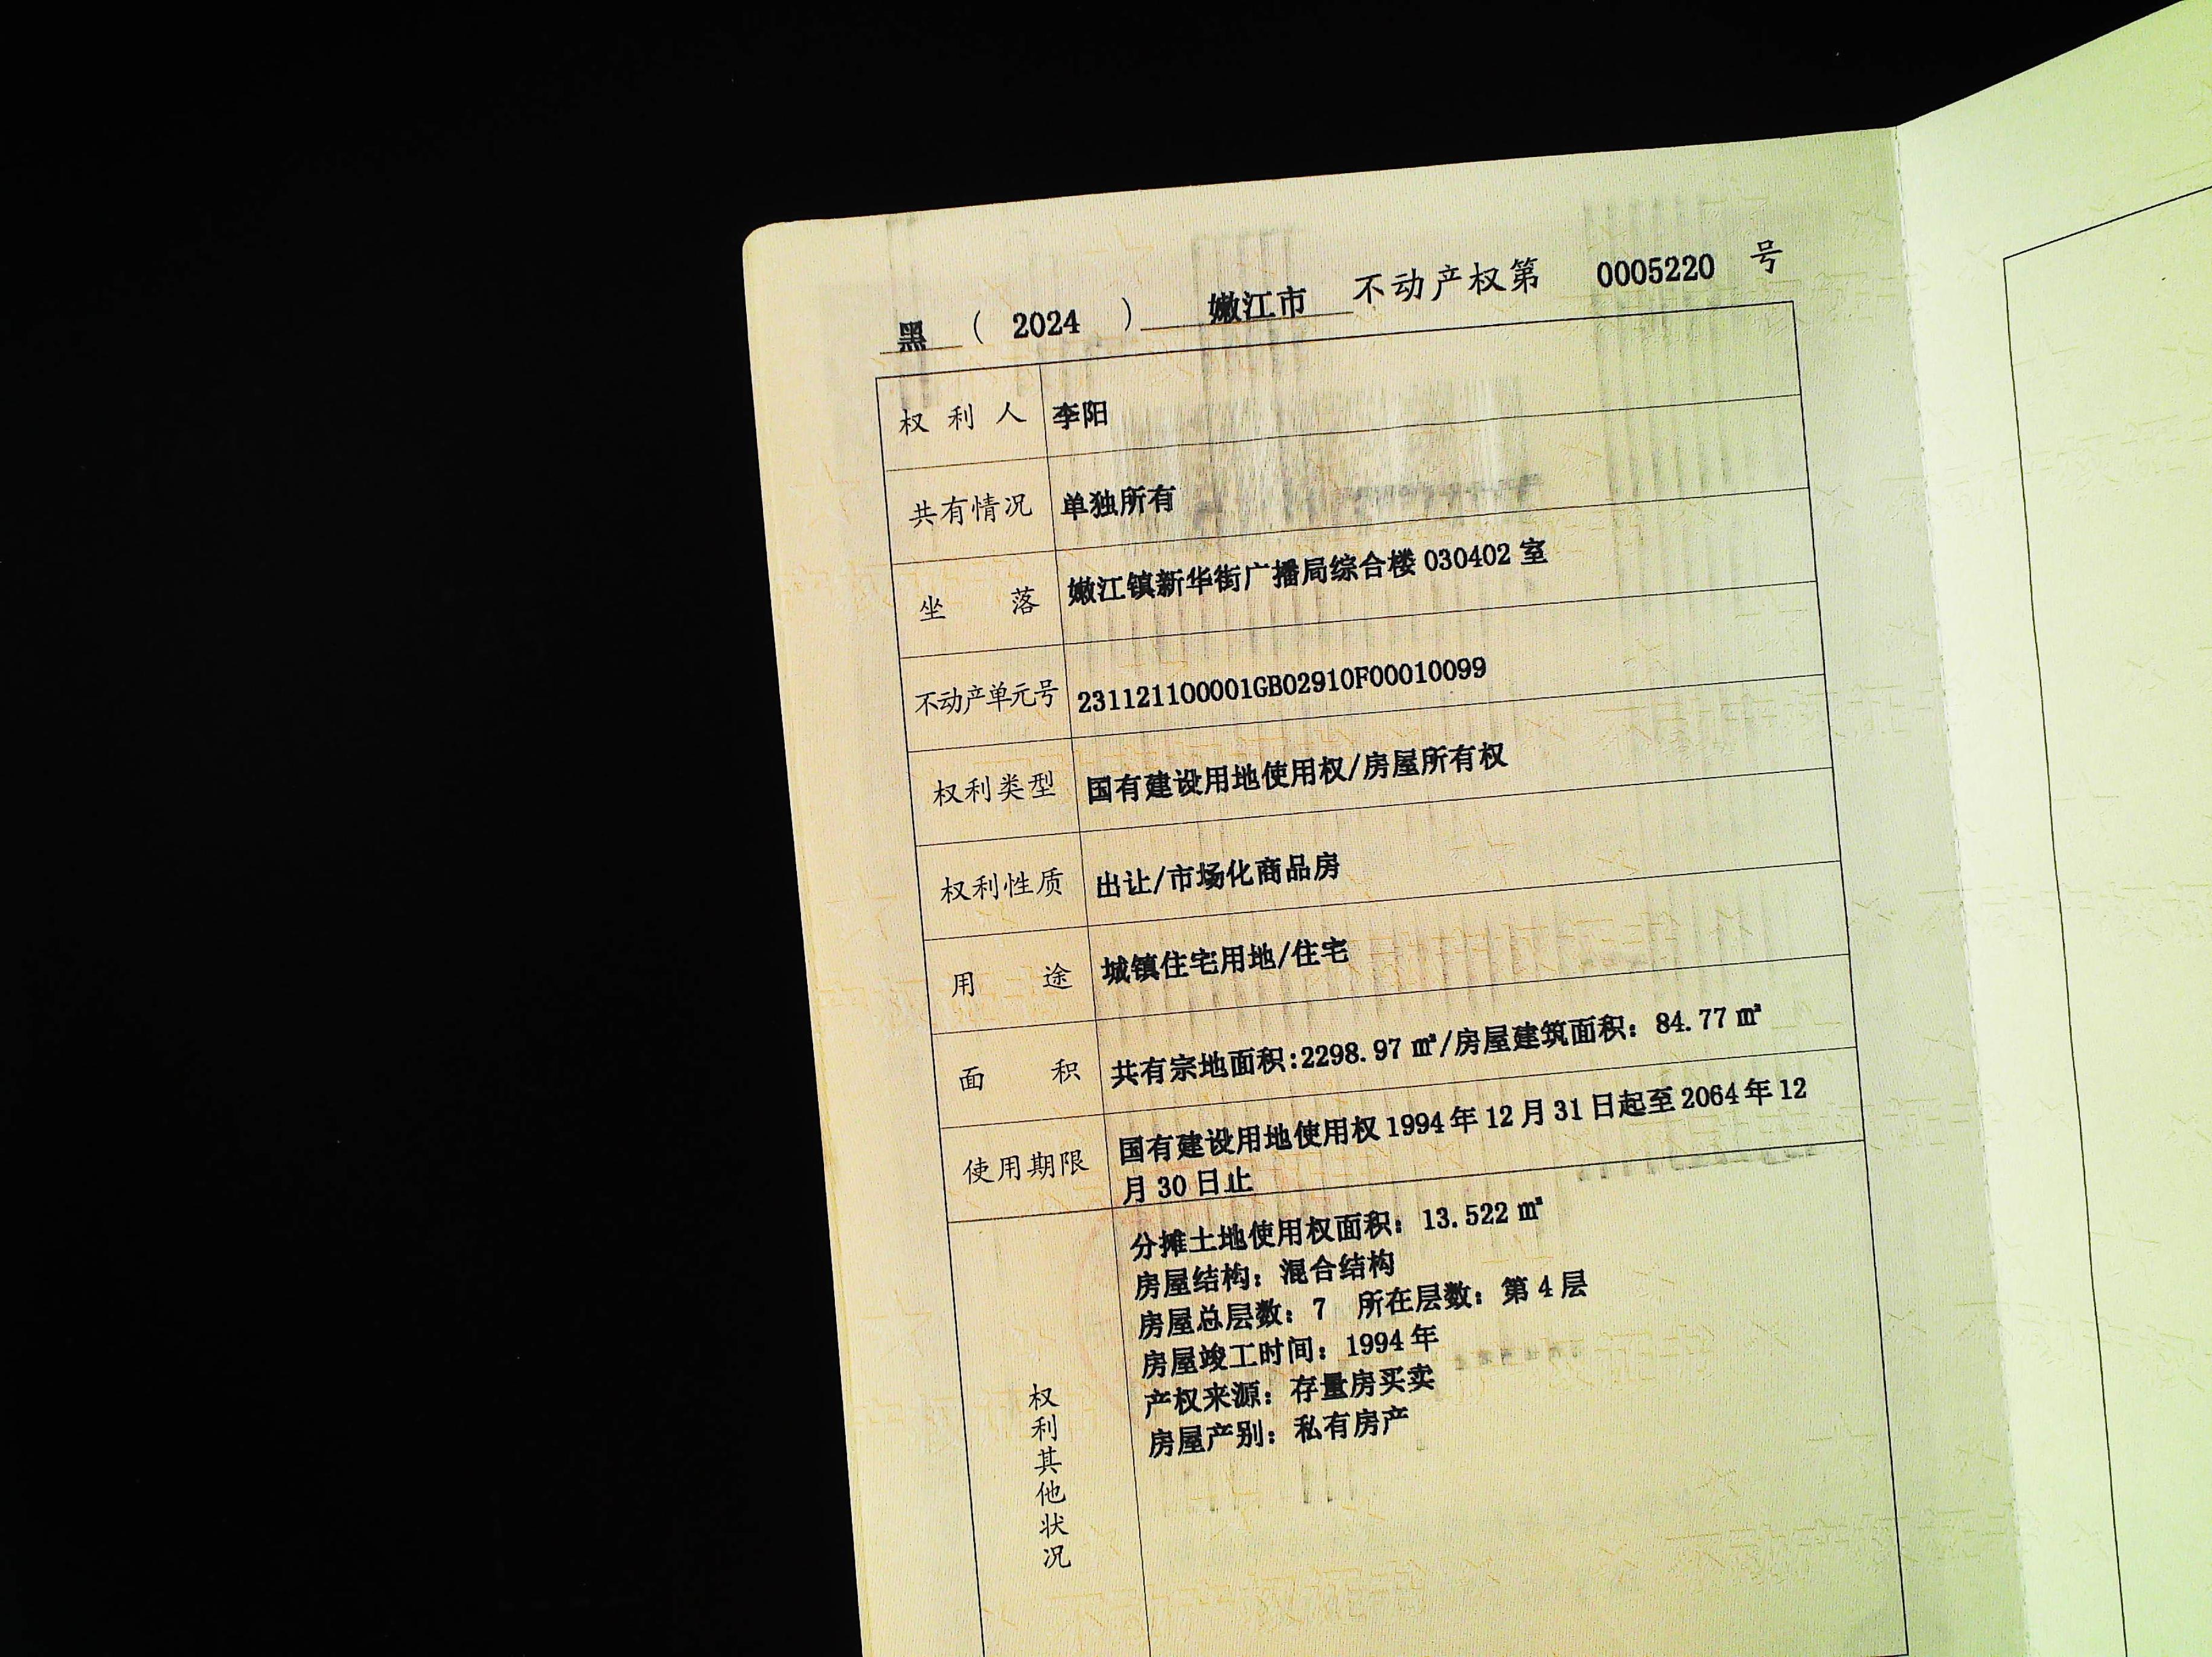 黑 （ 2024 ） 嫩江市 不动产权第 0005220 号
权利人 李阳
共有情况 单独所有
坐落 嫩江镇新华街广播局综合楼 030402 室
不动产单元号 231121100001GB02910F00010099
权利类型 国有建设用地使用权/房屋所有权
权利性质 出让/市场化商品房
用途 城镇住宅用地/住宅
面积 共有宗地面积:2298.97 ㎡/房屋建筑面积：84.77 ㎡
使用期限 国有建设用地使用权 1994 年 12 月 31 日起至 2064 年 12
月 30 日止
权利其他状况
分摊土地使用权面积：13.522 ㎡
房屋结构：混合结构
房屋总层数：7 所在层数：第 4 层
房屋竣工时间：1994 年
产权来源：存量房买卖
房屋产别：私有房产